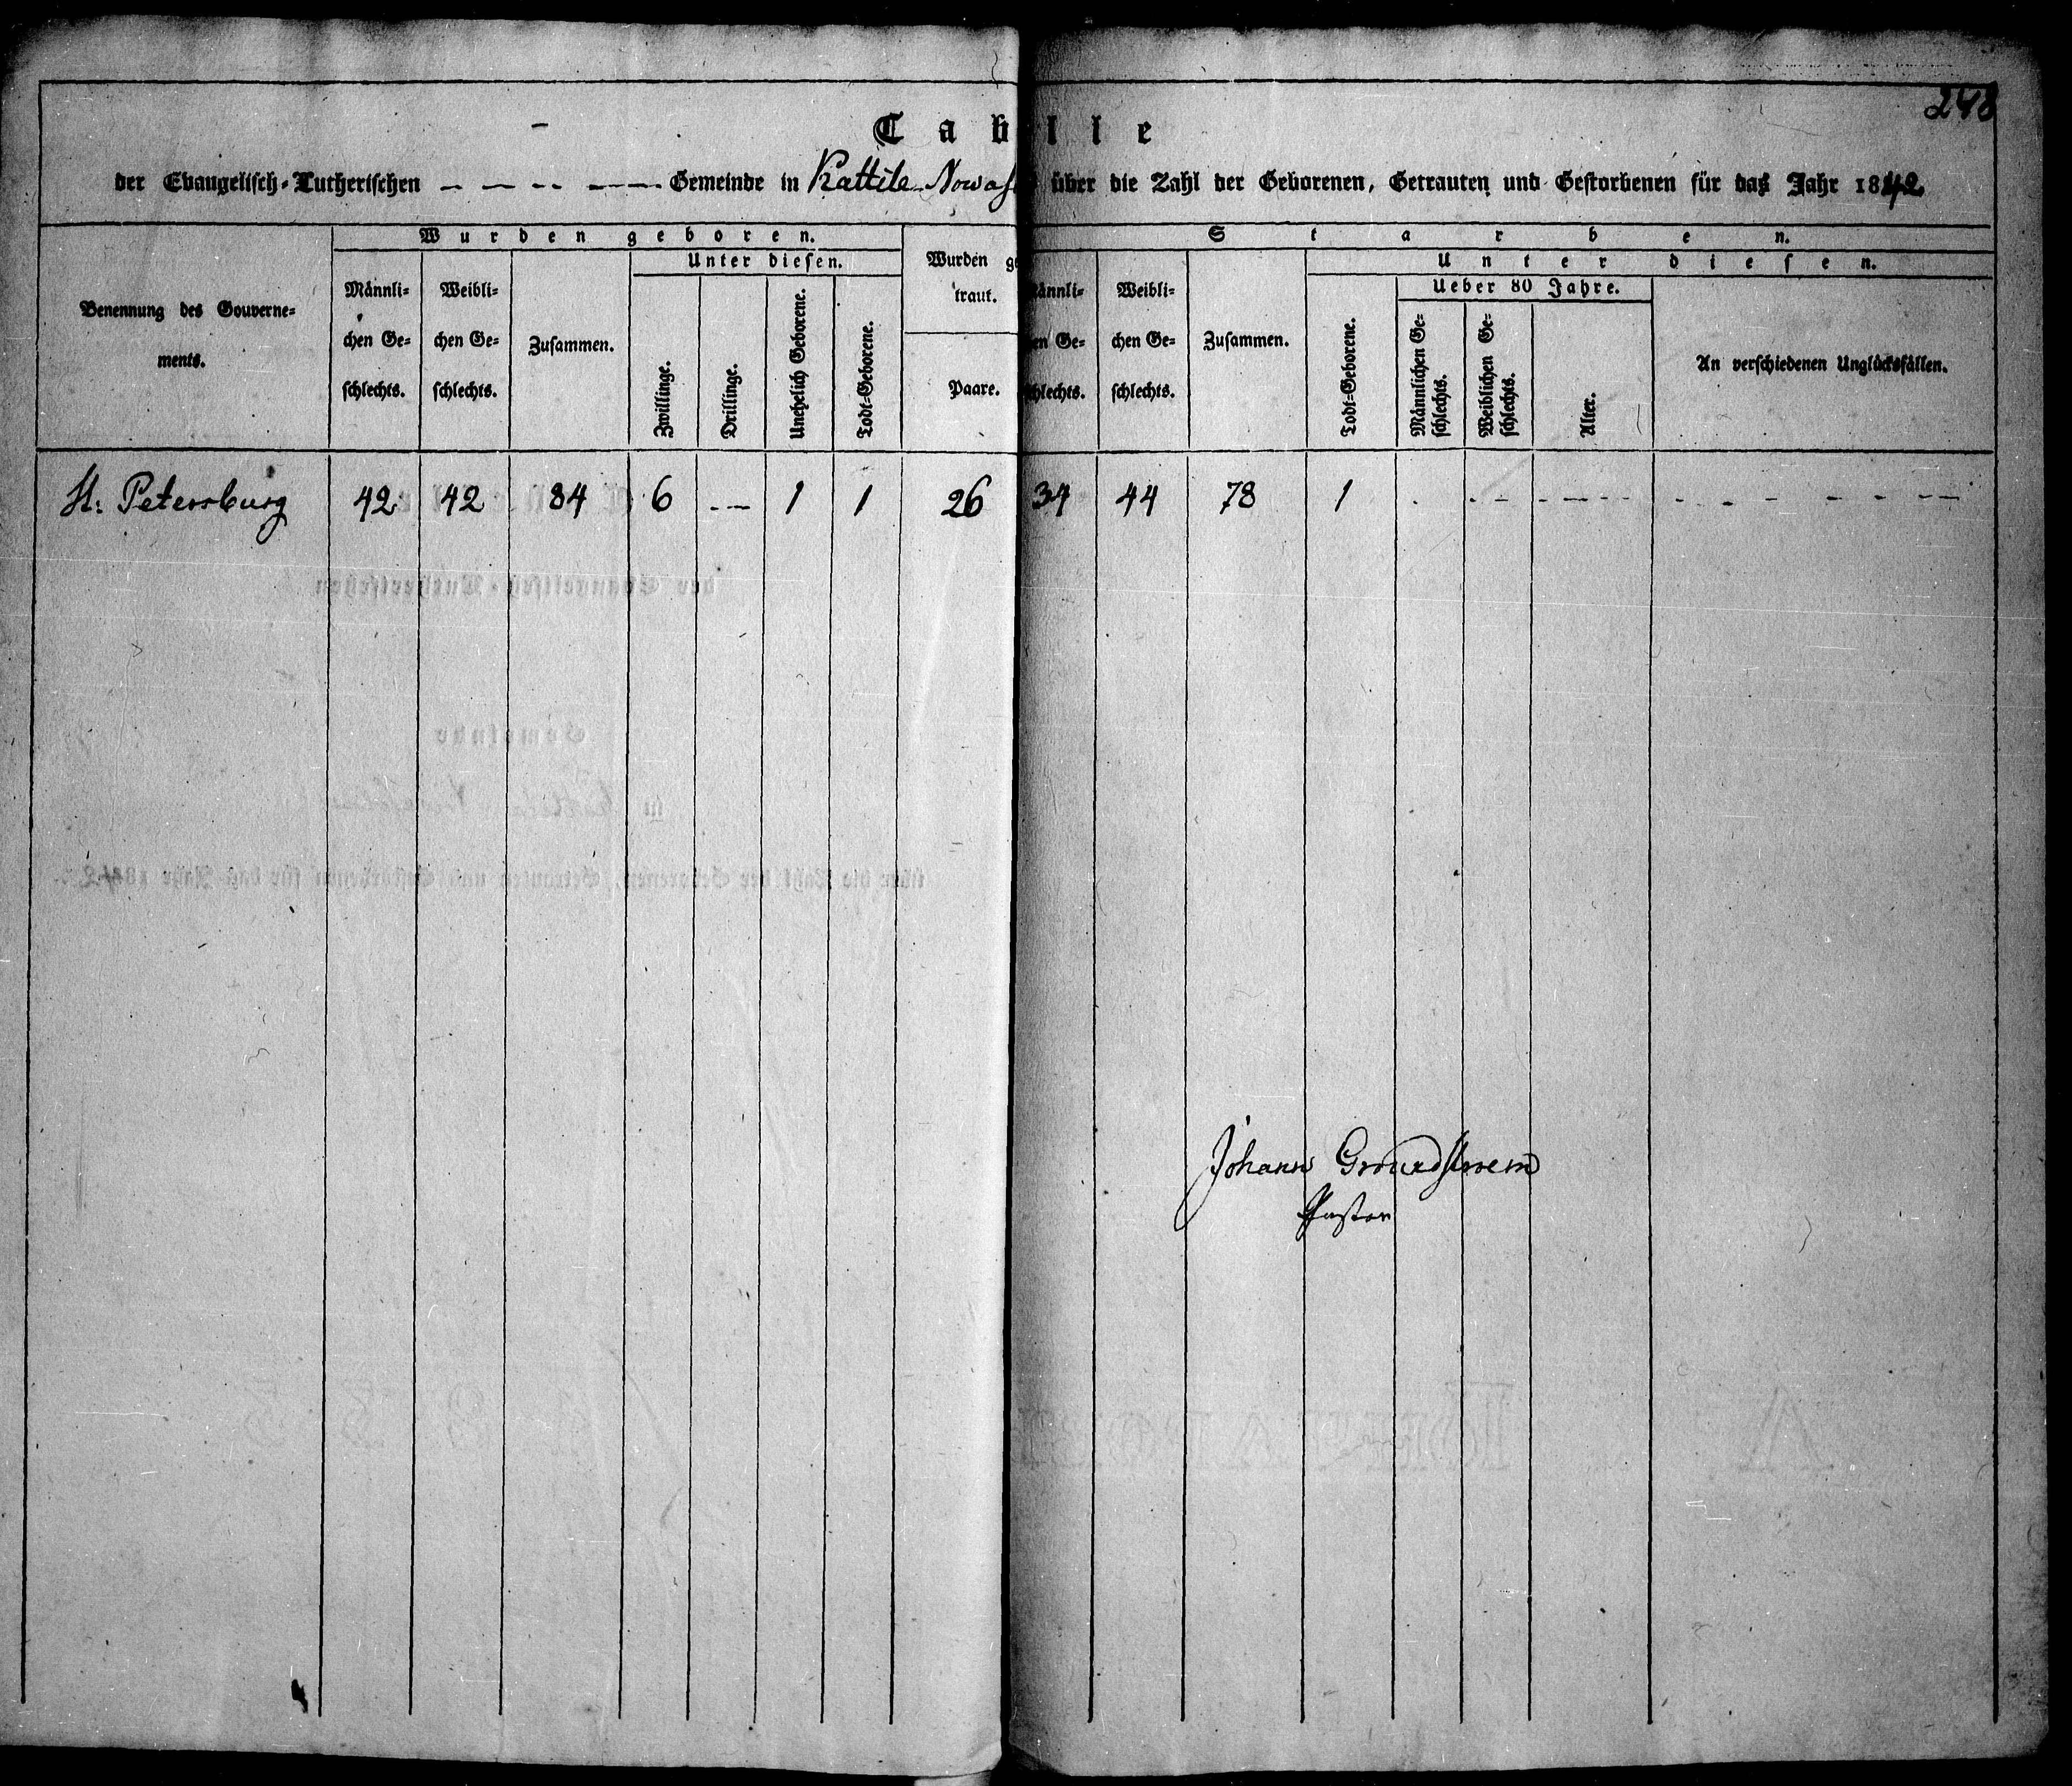 248
Tabelle
der Evangelisch-Lutherischen — — — — Gemeinde in Kattila Nowas über die Zahl der Geborenen, Getrauten und Gestorbenen für das Jahr 1842
Benennung des Gouverne-
ments.
Wurden geboren.
Männli-
chen Ge-
schlechts.
Weibli-
chen Ge-
schlechts.
Zusammen.
Unter diesen.
Zwillinge.
Drillinge.
Unehelich Geborene.
Todt-Geborene.
Wurden ge
traut.
Paare.
Starben.
ännli-
en Ge-
hlechts.
Weibli-
chen Ge-
schlechts.
Zusammen.
Unter diesen.
Todt-Geborene.
Ueber 80 Jahre.
Männlichen Ge-
schlechts.
Weiblichen Ge-
schlechts.
Alter.
An verschiedenen Unglücksfällen.
St: Petersburg 42 42 84 6 — 1 1 26 34 44 78 1 - - - -
Johann Grundstroem
Pastor